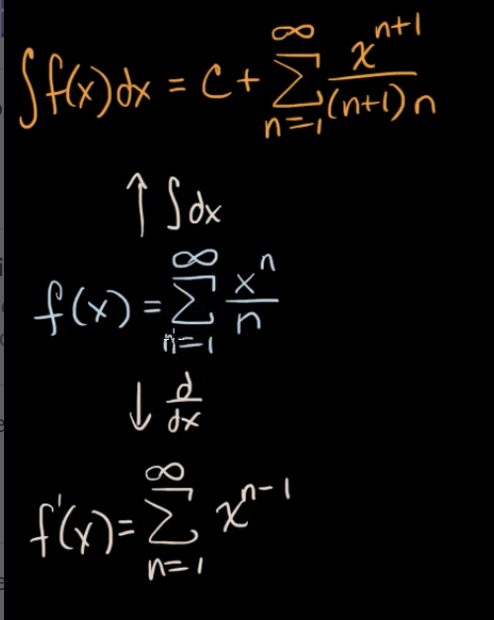 ∫f(x)dx = C + ∑_{n=1}^{∞} x^{n+1}/((n+1)n)
↑ ∫dx
f(x) = ∑_{n=1}^{∞} x^n/n
↓ d/dx
f'(x) = ∑_{n=1}^{∞} x^{n-1}